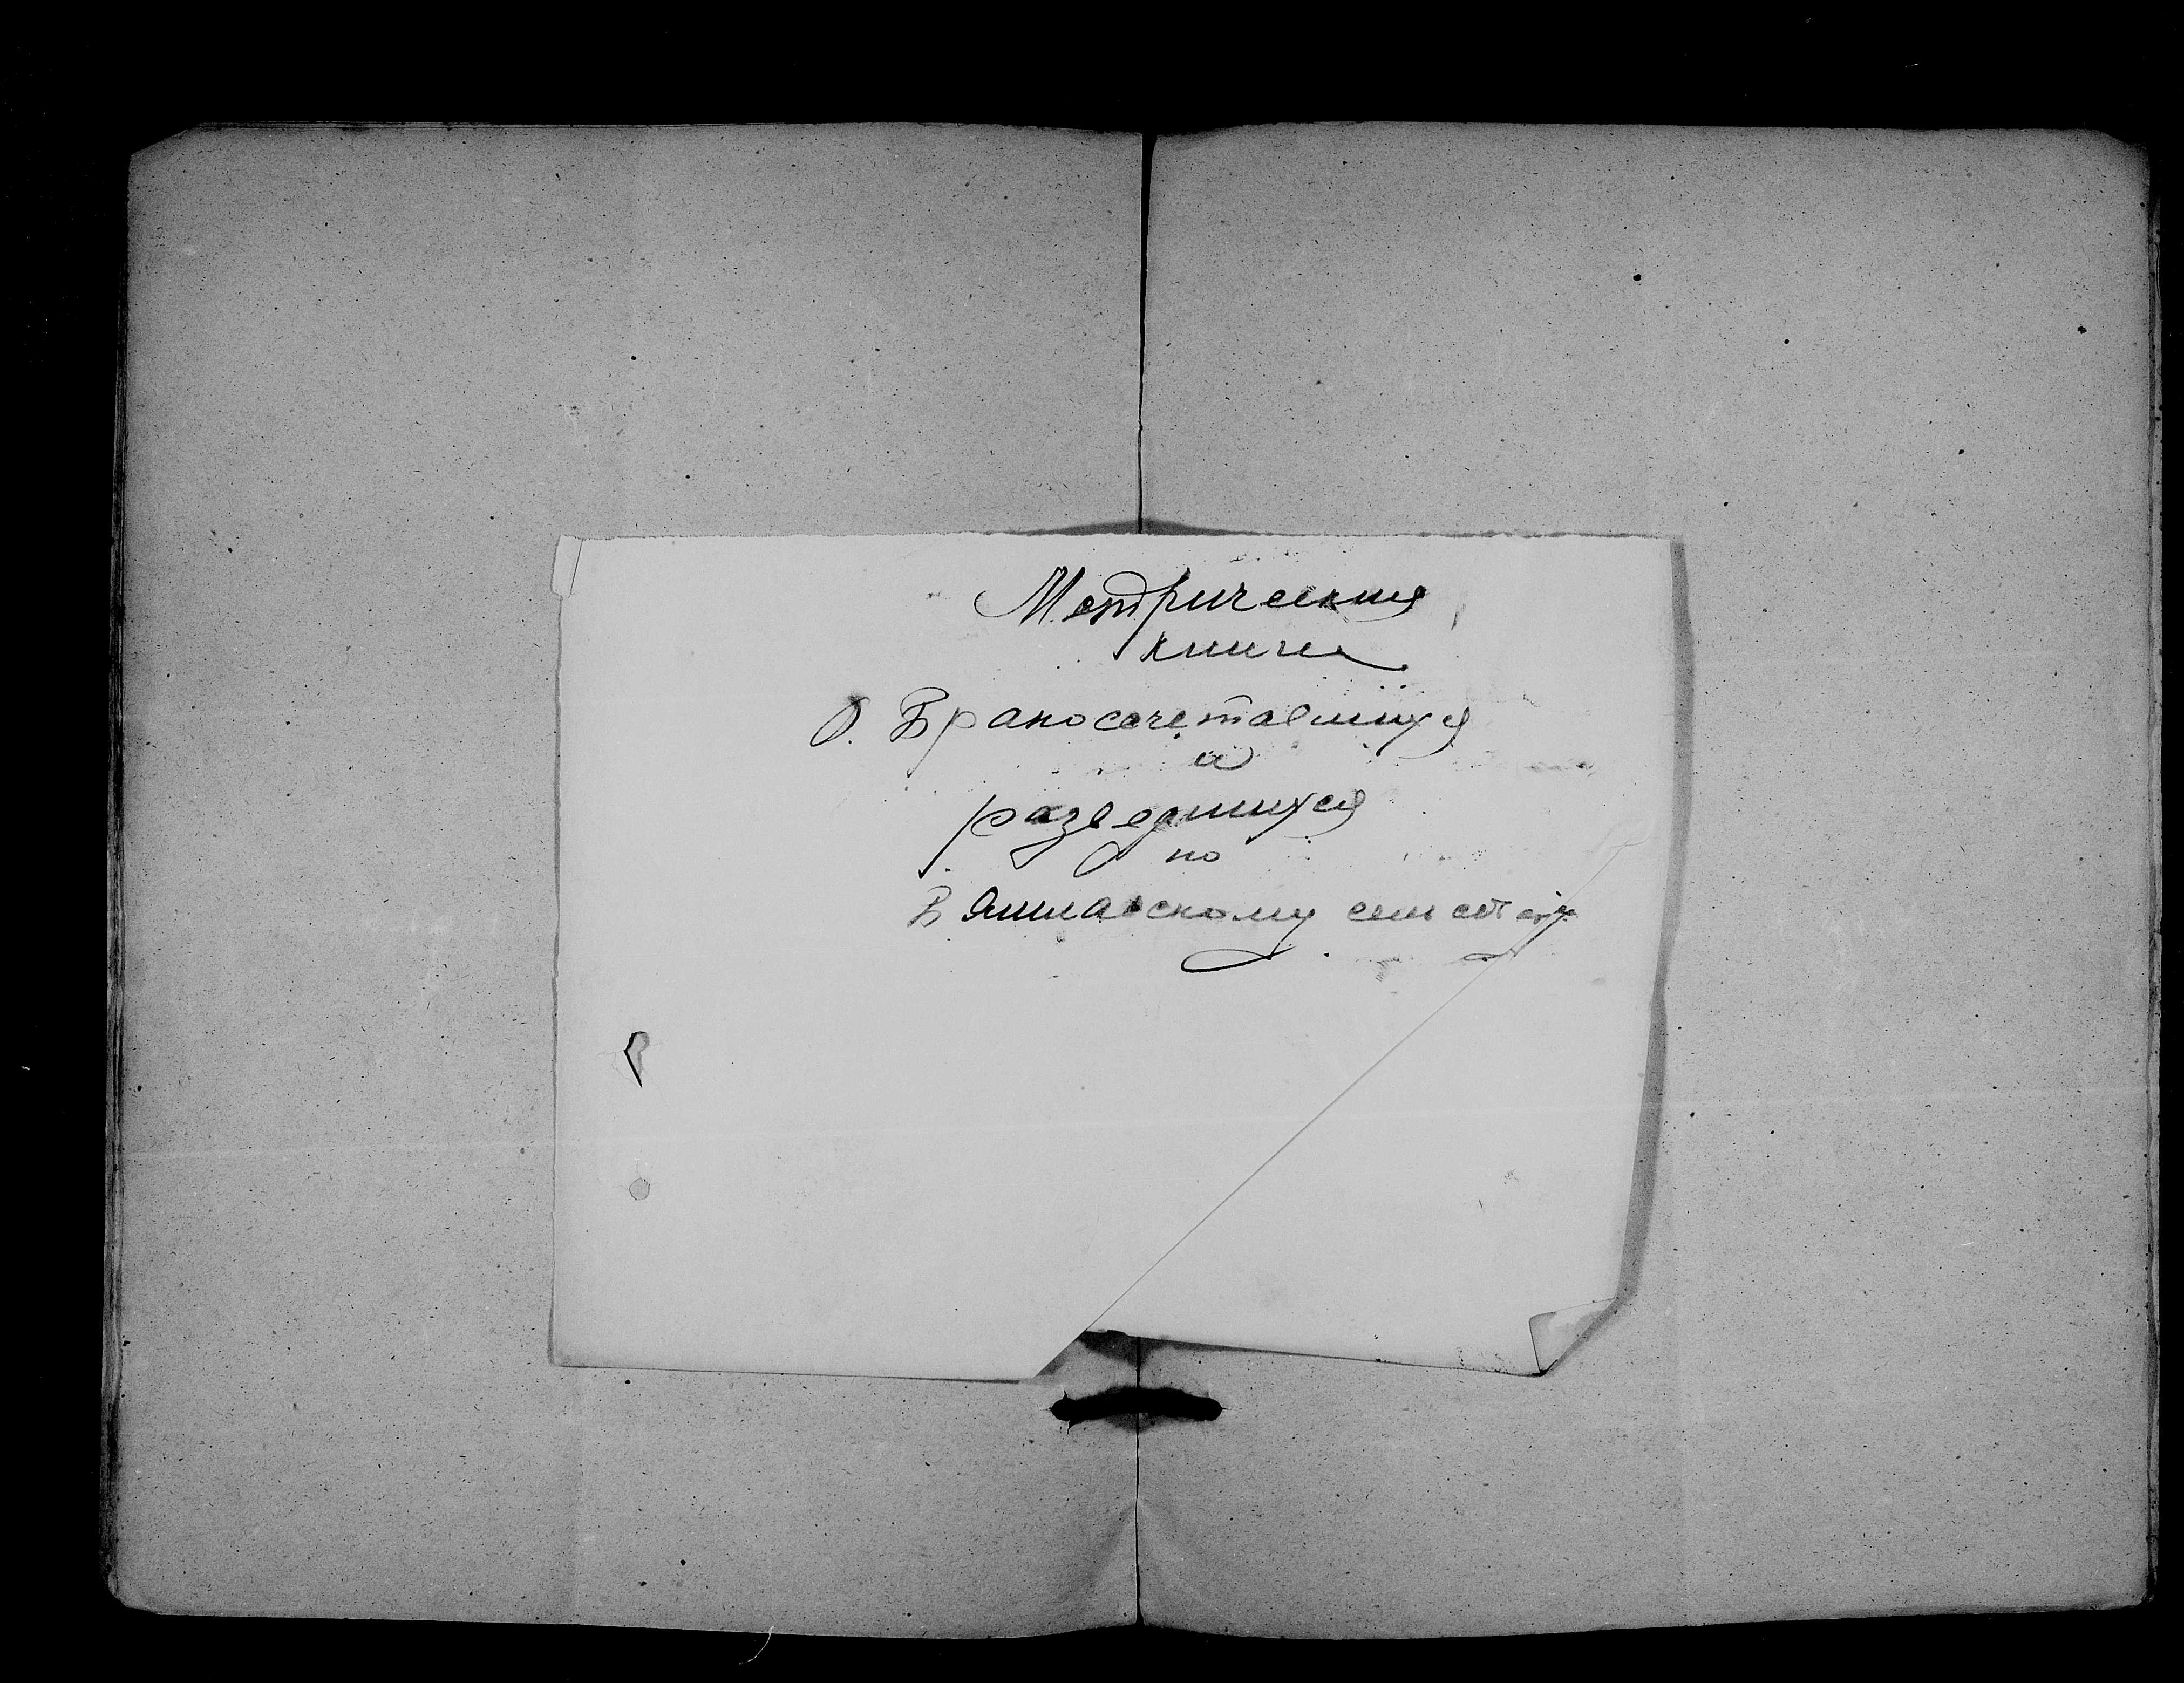 Метрическия
книги
О Бракосочетавшихся
и
разведшихся
по
сельсовету